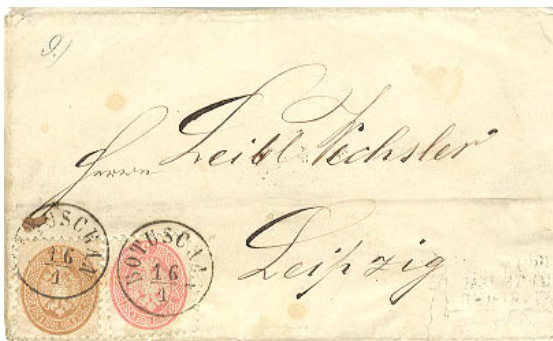 9.)
Herrn Leibl Wechsler
Leipzig
BOTUSCHAN
16
1
BOTUSCHAN
16
1